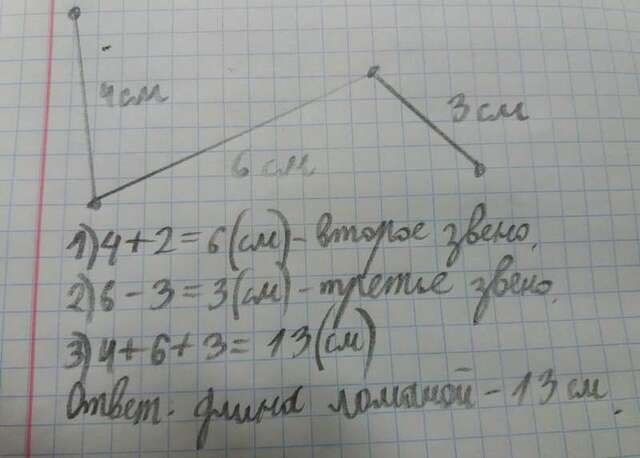 4см
3см
6см
1) 4+2=6(см)-второе звено.
2) 6-3=3(см)-третье звено.
3) 4+6+3=13(см)
Ответ. длина ломаной-13см.